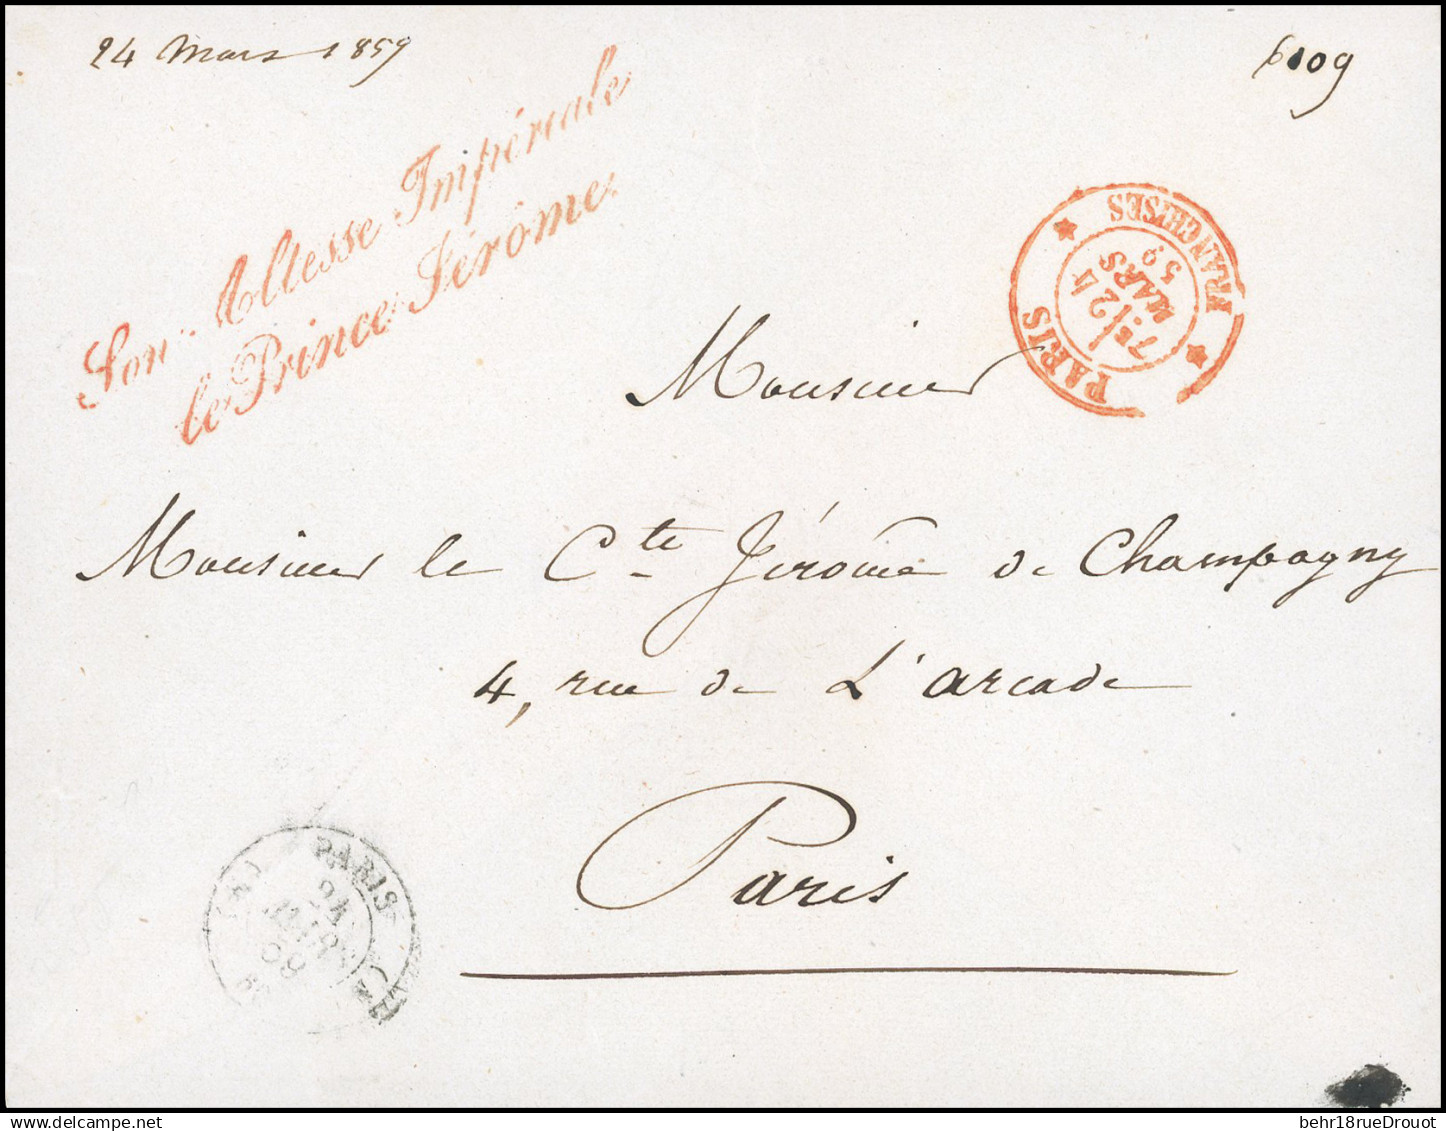 24 Mars 1859
6109
Son Altesse Impériale
le Prince Jérôme
PARIS
FRANCHISES
7E
24
MARS
59
Monsieur
Monsieur le Cte Jérôme de Champagny
4, rue de L'arcade
Paris
PARIS
24
MARS
59
behr18rueDrouot